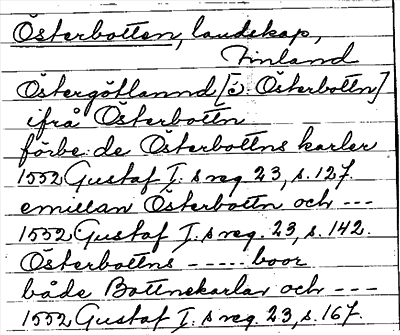 Österbotten, landskap,
Finland
Östergötlannd [ɔ: Österbottn]
ifrå Österbottn
förbe:de Österbottns karler
1552 Gustaf I:s reg. 23, s. 127.
emillan Österbottn och ---
1552 Gustaf I:s reg. 23, s. 142.
Österbottns ----- boor
både Bottnekarlar och ---
1552 Gustaf I:s reg. 23, s. 167.